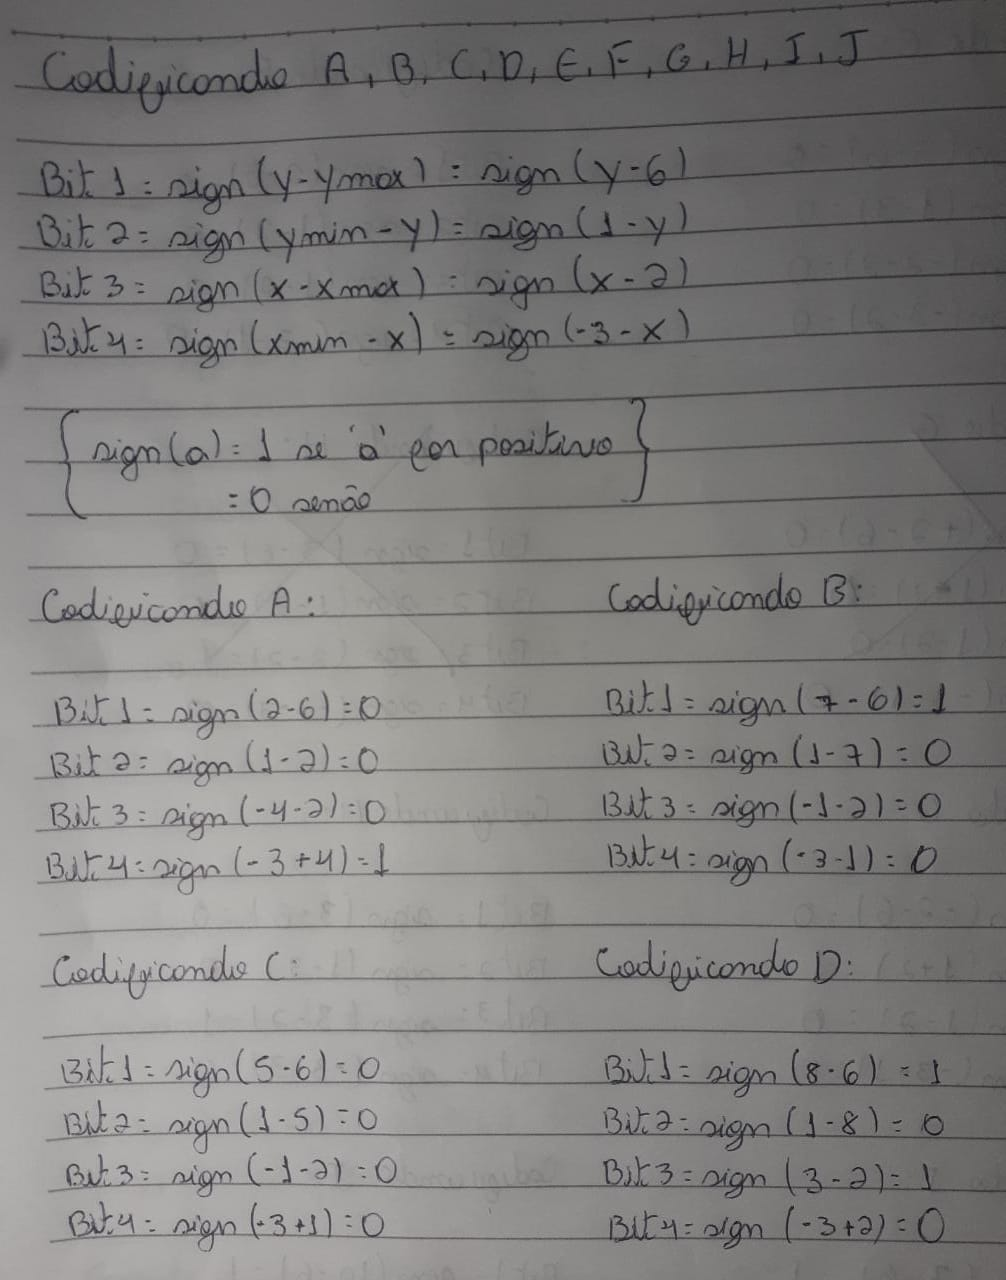 Codificando A, B, C, D, E, F, G, H, I, J
Bit 1 = sign (y-ymax) = sign (y-6)
Bit 2 = sign (ymin-y) = sign (1-y)
Bit 3 = sign (x-xmax) = sign (x-2)
Bit 4 = sign (xmin-x) = sign (-3-x)
{ sign(a) = 1 se 'a' for positivo }
= 0 senão
Codificando A:
Bit 1 = sign (2-6) = 0
Bit 2 = sign (1-2) = 0
Bit 3 = sign (-4-2) = 0
Bit 4 = sign (-3+4) = 1
Codificando B:
Bit 1 = sign (7-6) = 1
Bit 2 = sign (1-7) = 0
Bit 3 = sign (-1-2) = 0
Bit 4 = sign (-3-1) = 0
Codificando C:
Bit 1 = sign (5-6) = 0
Bit 2 = sign (1-5) = 0
Bit 3 = sign (-1-2) = 0
Bit 4 = sign (-3+1) = 0
Codificando D:
Bit 1 = sign (8-6) = 1
Bit 2 = sign (1-8) = 0
Bit 3 = sign (3-2) = 1
Bit 4 = sign (-3+2) = 0